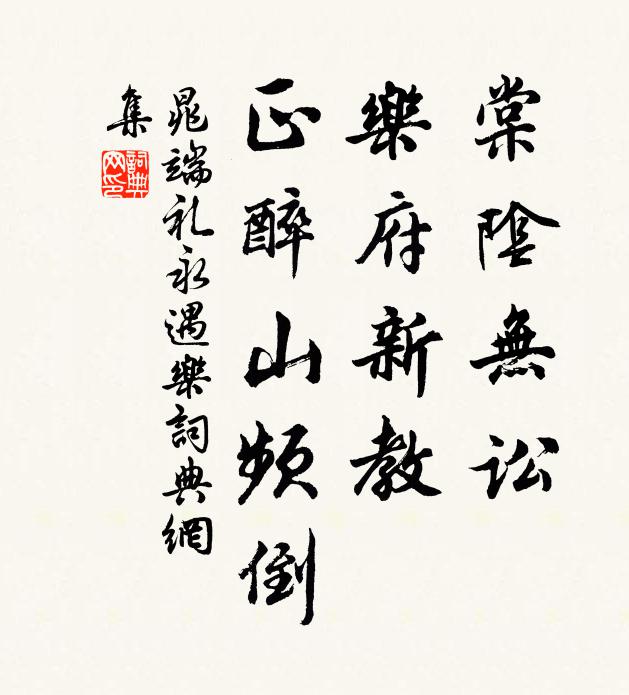 棠陰無訟
樂府新教
正醉山頻倒
晁端礼永遇樂詞典網
集
詞典
网印